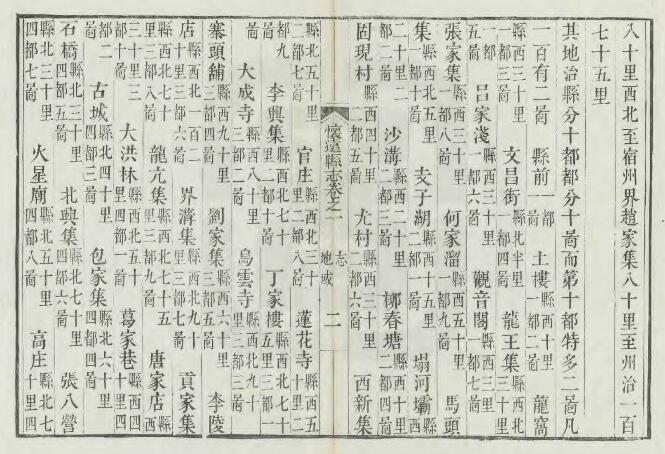 八十里西北至宿州界趙家集八十里至州治一百
七十五里
其地治縣分十都都分十啚而第十都特多二啚凡
一百有二啚　縣前一都一啚　土樓一都二啚　龍窩
縣西三十里一都三啚　文昌街縣北半里一都四啚　龍王集縣西北三十里一都
五啚　吕家淺縣西三十里一都六啚　觀音閣一都七啚
張家集縣西三十里一都八啚　何家溜縣西五十里一都九啚　馬頭
集縣西北八十里一都十啚　支子湖縣西十五里二都一啚　塌河壩縣西
二十里二都二啚　沙溝縣西二十里二都三啚　柳春塘縣西二十里二都四啚
固現村縣西四十里二都五啚　尤村縣西三十里二都六啚　西新集
懷遠縣志卷之一　志　地域　二
縣北五十里二都七啚　官庄縣西北三十里二都八啚　蓮花寺縣西五十里二
都九啚　李興集縣西北七十里二都十啚　丁家樓縣西北七十五里三都一
啚　大成寺縣西八十里三都二啚　烏雲寺縣西北九十里三都三啚
寨頭舖縣西九十里三都四啚　劉家集縣西六十里三都五啚　李陵
店縣西北一百二十里三都六啚　界溝集縣西北九十里三都七啚　貢家集
縣西北七十里三都八啚　龍亢集縣西北七十五里三都九啚　唐家店縣西
三十里三都十啚　大洪林縣西北五十里四都一啚　葛家巷縣西十里四
都二啚　古城縣北四十里四都三啚　包家集縣北六十里四都四啚
石橋縣北三十里四都五啚　北興集縣北七十里四都六啚　張八營
縣北三十里四都七啚　火星廟縣北五十里四都八啚　高庄縣北七十里四